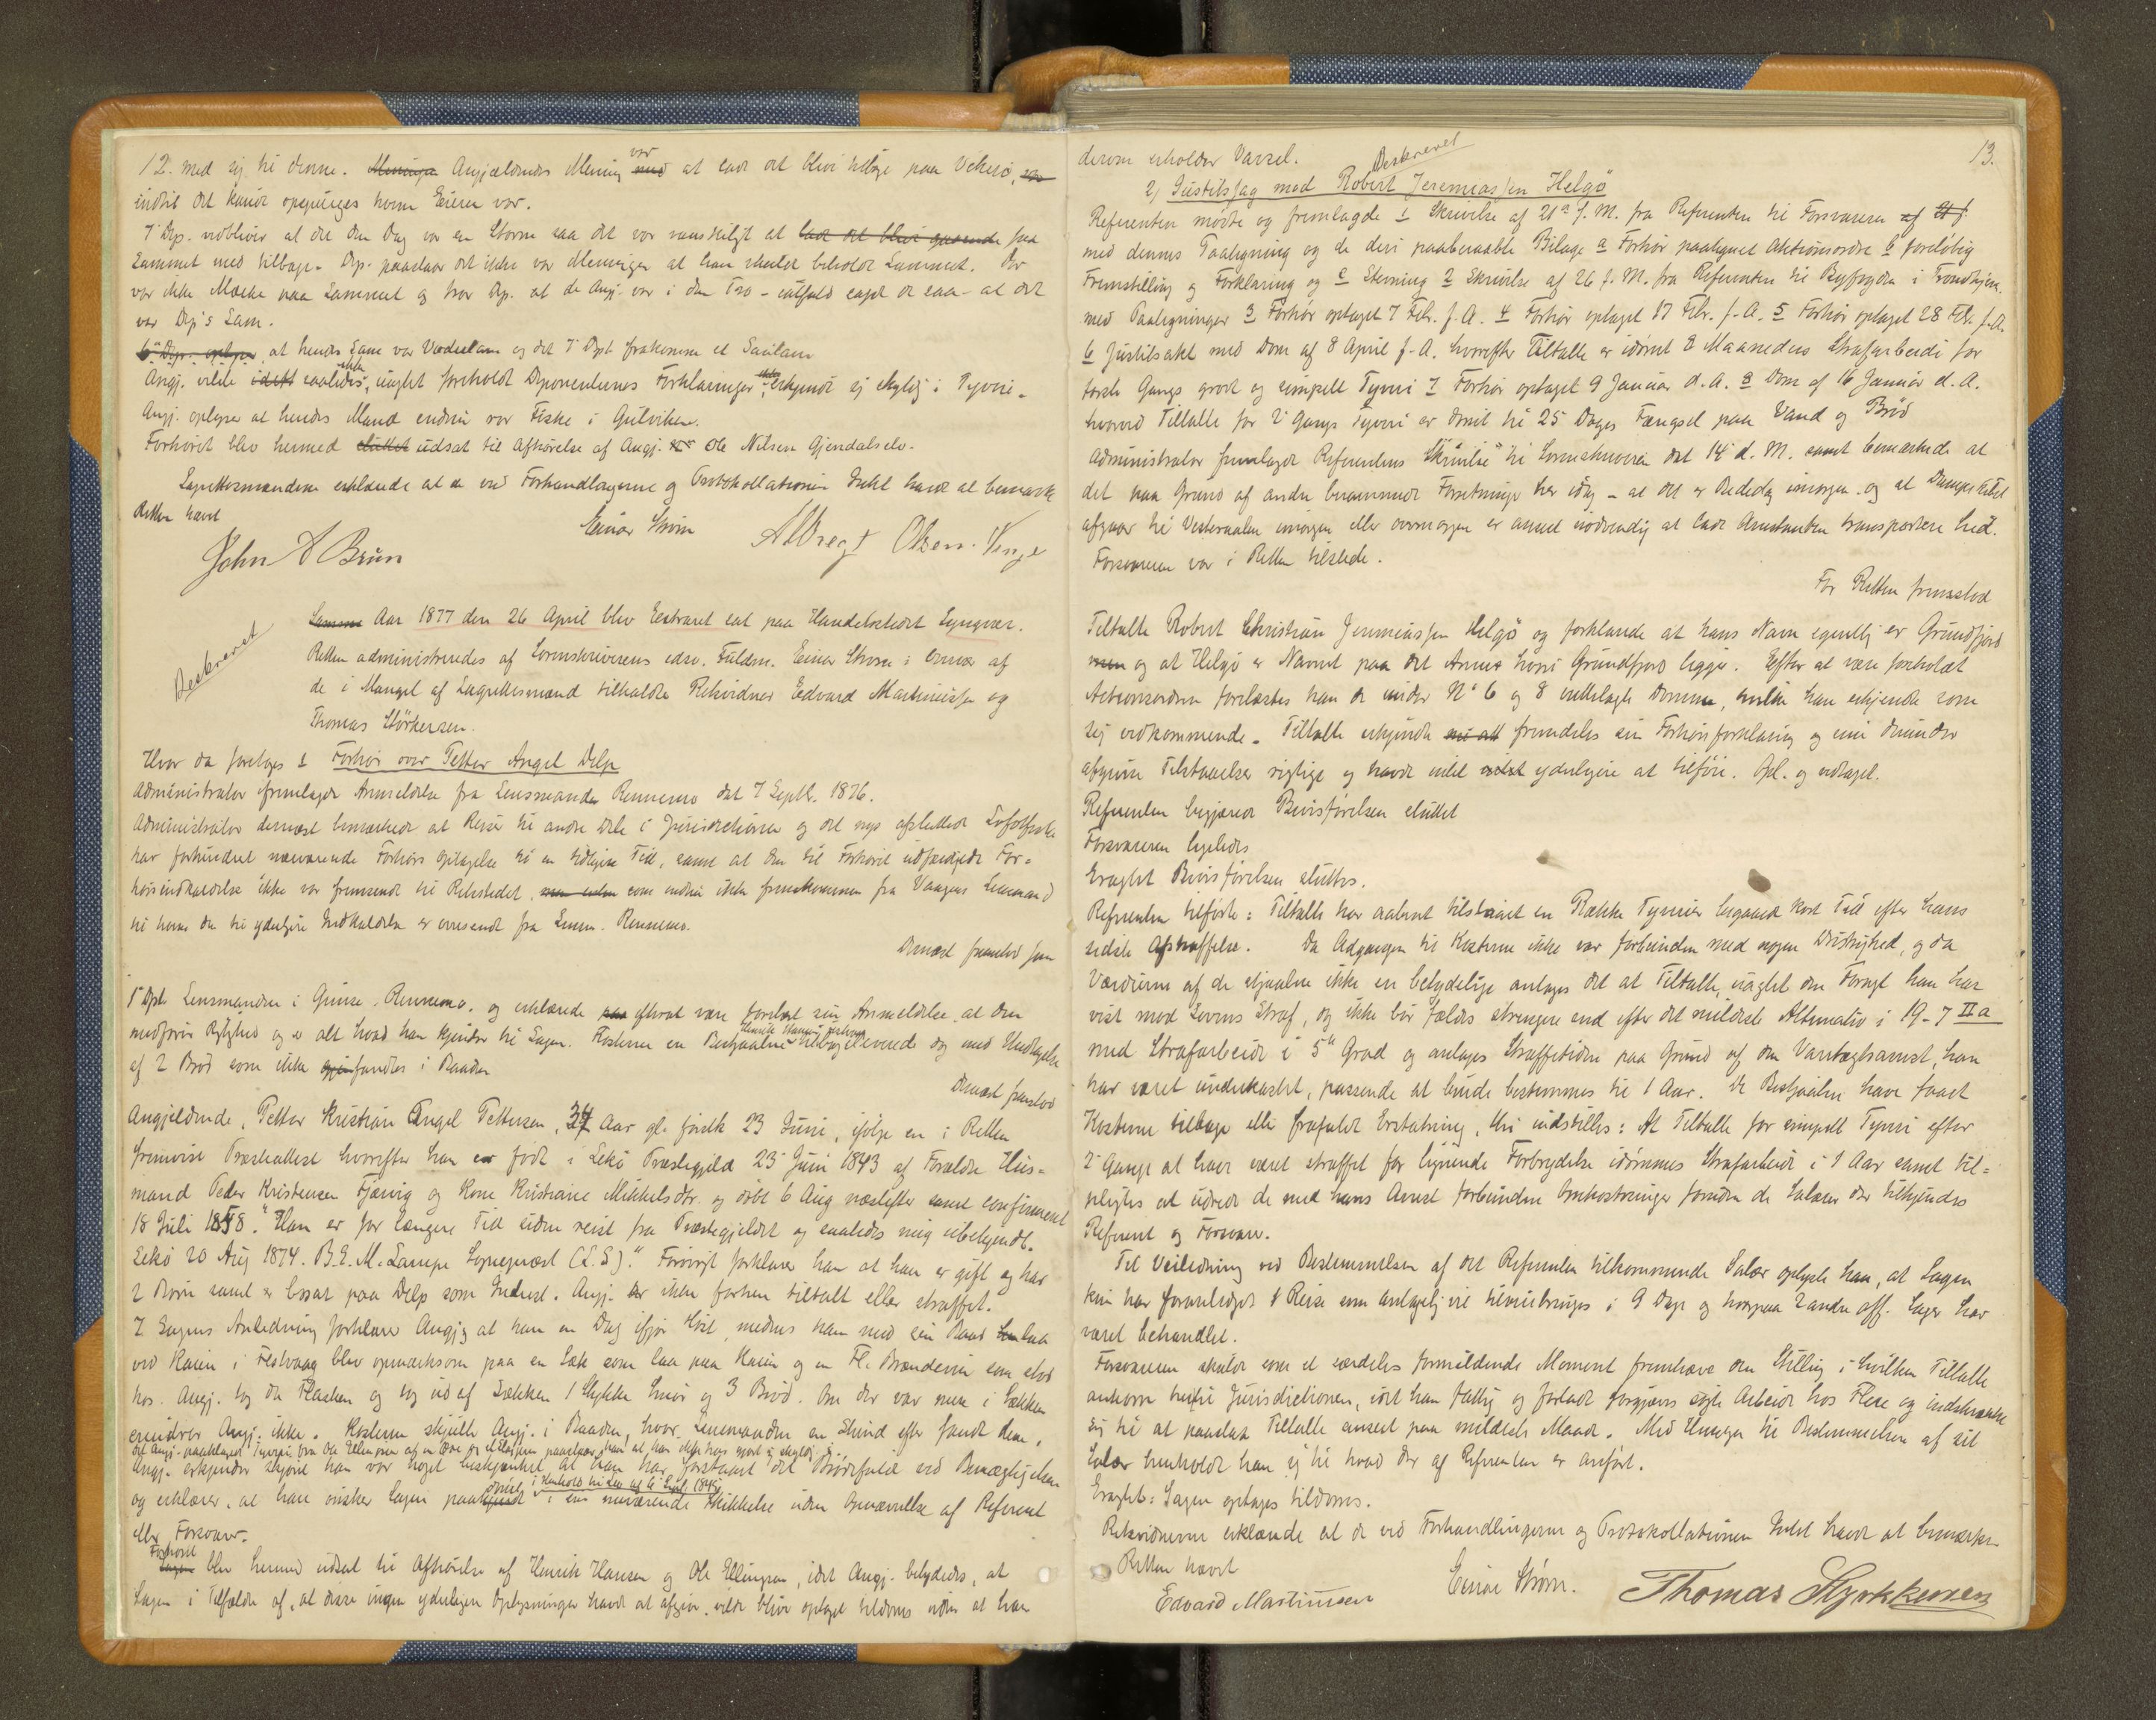 12. med sig til denne. Meningen Angjældendes Mening var med at lade det blive tilbage paa Vikerö,
indtil det kunde opspürges hvem Eieren var.
7 Dep. vedbliver at det den Dag var en Storm saa det var vanskeligt at lade det blive gaaende faa
Lammet med tilbage. Dep. paastaar det ikke var Meningen at han skulde beholde Lammet. Der
var ikke Mærke paa Lammet og tror Dp. at de Angj. var i den Tro - ialfald sagde de saa - at det
var Dep's Lam.
6te Dep. oplyser, at hendes Lam var Væderlam og det 7de Dpt. frakomne et Saulam
Angj. vilde idett saaledes, uagtet foreholdt Deponenternes Forklaringer ikke erkjende sig skyldig i Tyveri.
Angj. oplyser at hendes Mand endnu ror Fiske i Gulviken.
Forhöret blev hermed sluttet udsat til Afhörelse af Angj. Ole Nilsen Gjendalselv.
Lagrettesmændene erklærede at de ved Forhandlingerne og Protokollationen Intet havde at bemærke
Retten hævet
John A Brun Einar Strøm Albregt Olsen Vinge
Beskrevet
Samme Aar 1877 den 26 April blev Extraret sat paa Handelsstedet Lyngvær.
Retten administreredes af Sorenskriverens edsv. Fuldm. Einar Strøm i Overvær af
de i Mangel af Lagrettesmænd tilkaldte Retsvidner Edvard Martinussen og
Thomas Störkersen.
Hvor da foretoges 1 Forhör over Petter Angel Delp
Administrator fremlagde Anmeldelse fra Lensmanden Rennemo dat 7 Septbr. 1876.
Administrator dernæst bemærkede at Reiser til andre Dele i Jurisdictionen og det nys afsluttede Lofotfiske
har forhindret nærværende Forhörs Optagelse til en tidligere Tid, samt at den til Forhöret udfærdigede For=
hörsindkaldelse ikke var fremsendt til Retsstedet, men uden som endnu ikke fremkommen fra Vaagens Lensmand
til hvem den til yderligere Indkaldelse er oversendt fra Lensm. Rennemo.
Dernæst fremstod som
1ste Dpt. Lensmanden i Gimsø Rennemo. og erklærede efterat være forelæst sin Anmeldelse, at den
medförer Rigtighed og er alt hvad han kjender til Sagen. Kosterne er Bestjaalne Henrik Hansen tilbageleverede dog med Undtagelse
af 2 Bröd som ikke gjenfandtes i Baaden
Dernæst fremstod
Angjeldende, Petter Kristian Angel Pettersen, 34 Aar gl. förstk 23 Juni, ifölge en i Retten
fremvist Præsteattest hvorefter han er födt i Lekö Præstegjeld 23 Juni 1843 af Forældre Hus=
mand Peder Kristensen Fjærvig og Kone Kristiane Mikkelsdtr. og döbt 6 Aug næstefter samt confirmeret
18 Juli 1858. "Han er for længere Tid siden reist fra Præstegjeldet og saaledes mig ubekjendt.
Lekö 20 Aug 1874. B. E. M. Lampe Sogneprest (L.S)." Forövrigt forklarer han at han er gift og har
2 Börn samt er bosat paa Delp som Inderst. Angj. er ikke forhen tiltalt eller straffet.
I Sagens Anledning forklarer Angjg at han en Dag ifjor Höst, medens han med sin Baad laa
ved Kaien i Festvaag blev opmærksom paa en Sæk som laa paa Kaien og en Fl. Brændevin som stod
hos. Angj. tog da Flasken og tog ud af Sækken 1 Stykke Smör og 3 Bröd. Om der var mere i Sækken
erindrer Angj. ikke. Kosterne skjulte Angj. i Baaden, hvor Lensmanden en Stund efter fandt dem.
Angj. erkjender skjönt han var noget beskjænket at han har forstaaet det Brödefulde ved Bemægtigelsen
og erklærer, at han önsker Sagen paakjendt i Henhold til Lov af 6 Septb 1845 i sin nuværende Skikkelse uden Opnævnelse af Referent
eller Forsvarer.
Forhöret blev hermed udsat til Afhörelse af Henrik Hansen og Ole Ellingsen, idet Angj. betydedes, at
Sagen i Tilfælde af, at disse ingen yderligere Oplysninger havde at afgive, vilde blive optaget tildoms uden at han
13.
derom erholder Varsel.
Beskrevet
2) Justitssag mod Robert Jeremiassen Helgö
Referenten mødte og fremlagde 1 Skrivelse af 21de f. M. fra Referenten til Forsvareren
med dennes Paategning og de deri paaberaabte Bilage a Forhör paategnet Aktionsordre b foreløbig
Fremstilling og Forklaring og c Stevning 2 Skrivelse af 26 f. M. fra Referenten til Byfogden i Trondhjem
med Paategninger 3 Forhör optaget 7 Febr. f. A. 4 Forhör optaget 17 Febr. f. A. 5 Forhör optaget 28 Febr. f. A.
6 Justitsakt med Dom af 8 April f. A. hvorefter Tiltalte er idömt 2 Maaneders Strafarbeide for
første Gangs grovt og simpelt Tyveri 7 Forhör optaget 9 Januar d. A. 8 Dom af 16 Januar d. A.
hvorved Tiltalte for 2 Gangs Tyveri er dömt til 25 Dages Fængsel paa Vand og Bröd
Administrator fremlagde Referentens Skrivelse til Sorenskriveren dat 14 d. M. samt bemærkede at
det paa Grund af andre berammede Forretninger her idag - at det er Bededag imorgen og at Dampskibet
afgaar til Vesteraalen imorgen eller overmorgen er anseet nödvendig at lade Arrestanten transportere hid.
Forsvareren var i Retten tilstede.
For Retten fremstod
Tiltalte Robert Christian Jeremiassen Helgö og forklarede at hans Navn egentlig er Grundfjord
og at Helgö er Navnet paa det Annex hvori Grundfjord ligger. Efter at være foreholdt
Actionsordren forelæstes han de under No 6 og 8 indtagne Domme, hvilke han erkjendte som
sig vedkommende. Tiltalte erkjendte fremdeles sin Forhörsforklaring og sine derunder
afgivne Tilstaaelser rigtige og havde intet yderligere at tilföie. Opl. og vedtaget.
Referenten begjærede Bevisførelsen sluttet
Forsvareren ligeledes
Eragtet Bevisførelsen sluttes.
Referenten tilførte: Tiltalte har aabent tilstaaet en Række Tyverier begaaede kort Tid efter hans
sidste Afstraffelse. Da Adgangen til Kosterne ikke var forbunden med nogen Dristighed, og da
Værdierne af de stjaalne ikke er betydelige antages det at Tiltalte, uagtet den Foragt han har
vist mod Lovens Straf, dog ikke bör fældes strengere end efter det mildeste Alternativ i 19-7 IIa
med Strafarbeide i 5te Grad og antages Straffetiden paa Grund af den Varetægtsarrest, han
har været underkastet, passende at burde bestemmes til 1 Aar. De Bestjaalne have faaet
Kosterne tilbage eller frafaldt Erstatning, thi indstilles: At Tiltalte for simpelt Tyveri efter
2 Gange at have været straffet for lignende Forbrydelse idömmes Strafarbeide i 1 Aar samt til=
pligtes at udrede de med hans Arrest forbundne Omkostninger foruden de Salærer der tilkjendes
Referent og Forsvarer.
Til Veiledning ved Bestemmelsen af det Referenten tilkommende Salær oplyste han, at Sagen
kun har foranlediget 1 Reise som antagelig vil tilendebringes i 9 Dage og hvorpaa 2 andre off. Sager har
været behandlet.
Forsvareren skulde som et særdeles formildende Moment fremhæve den Stilling i hvilken Tiltalte
ankom hertil Jurisdictionen, idet han fattig og forladt forgjæves sögte Arbeide hos Flere og indskrænke
sig til at paastaa Tiltalte anseet paa mildeste Maade. Med Hensyn til Bestemmelsen af sit
Salær henholdt han sig til hvad der af Referenten er anført.
Eragtet: Sagen optages tildoms.
Retsvidnerne erklærede at de ved Forhandlingerne og Protokollationen Intet havde at bemærke.
Retten hævet
Edvard Martinussen Einar Strøm. Thomas Styrkersen